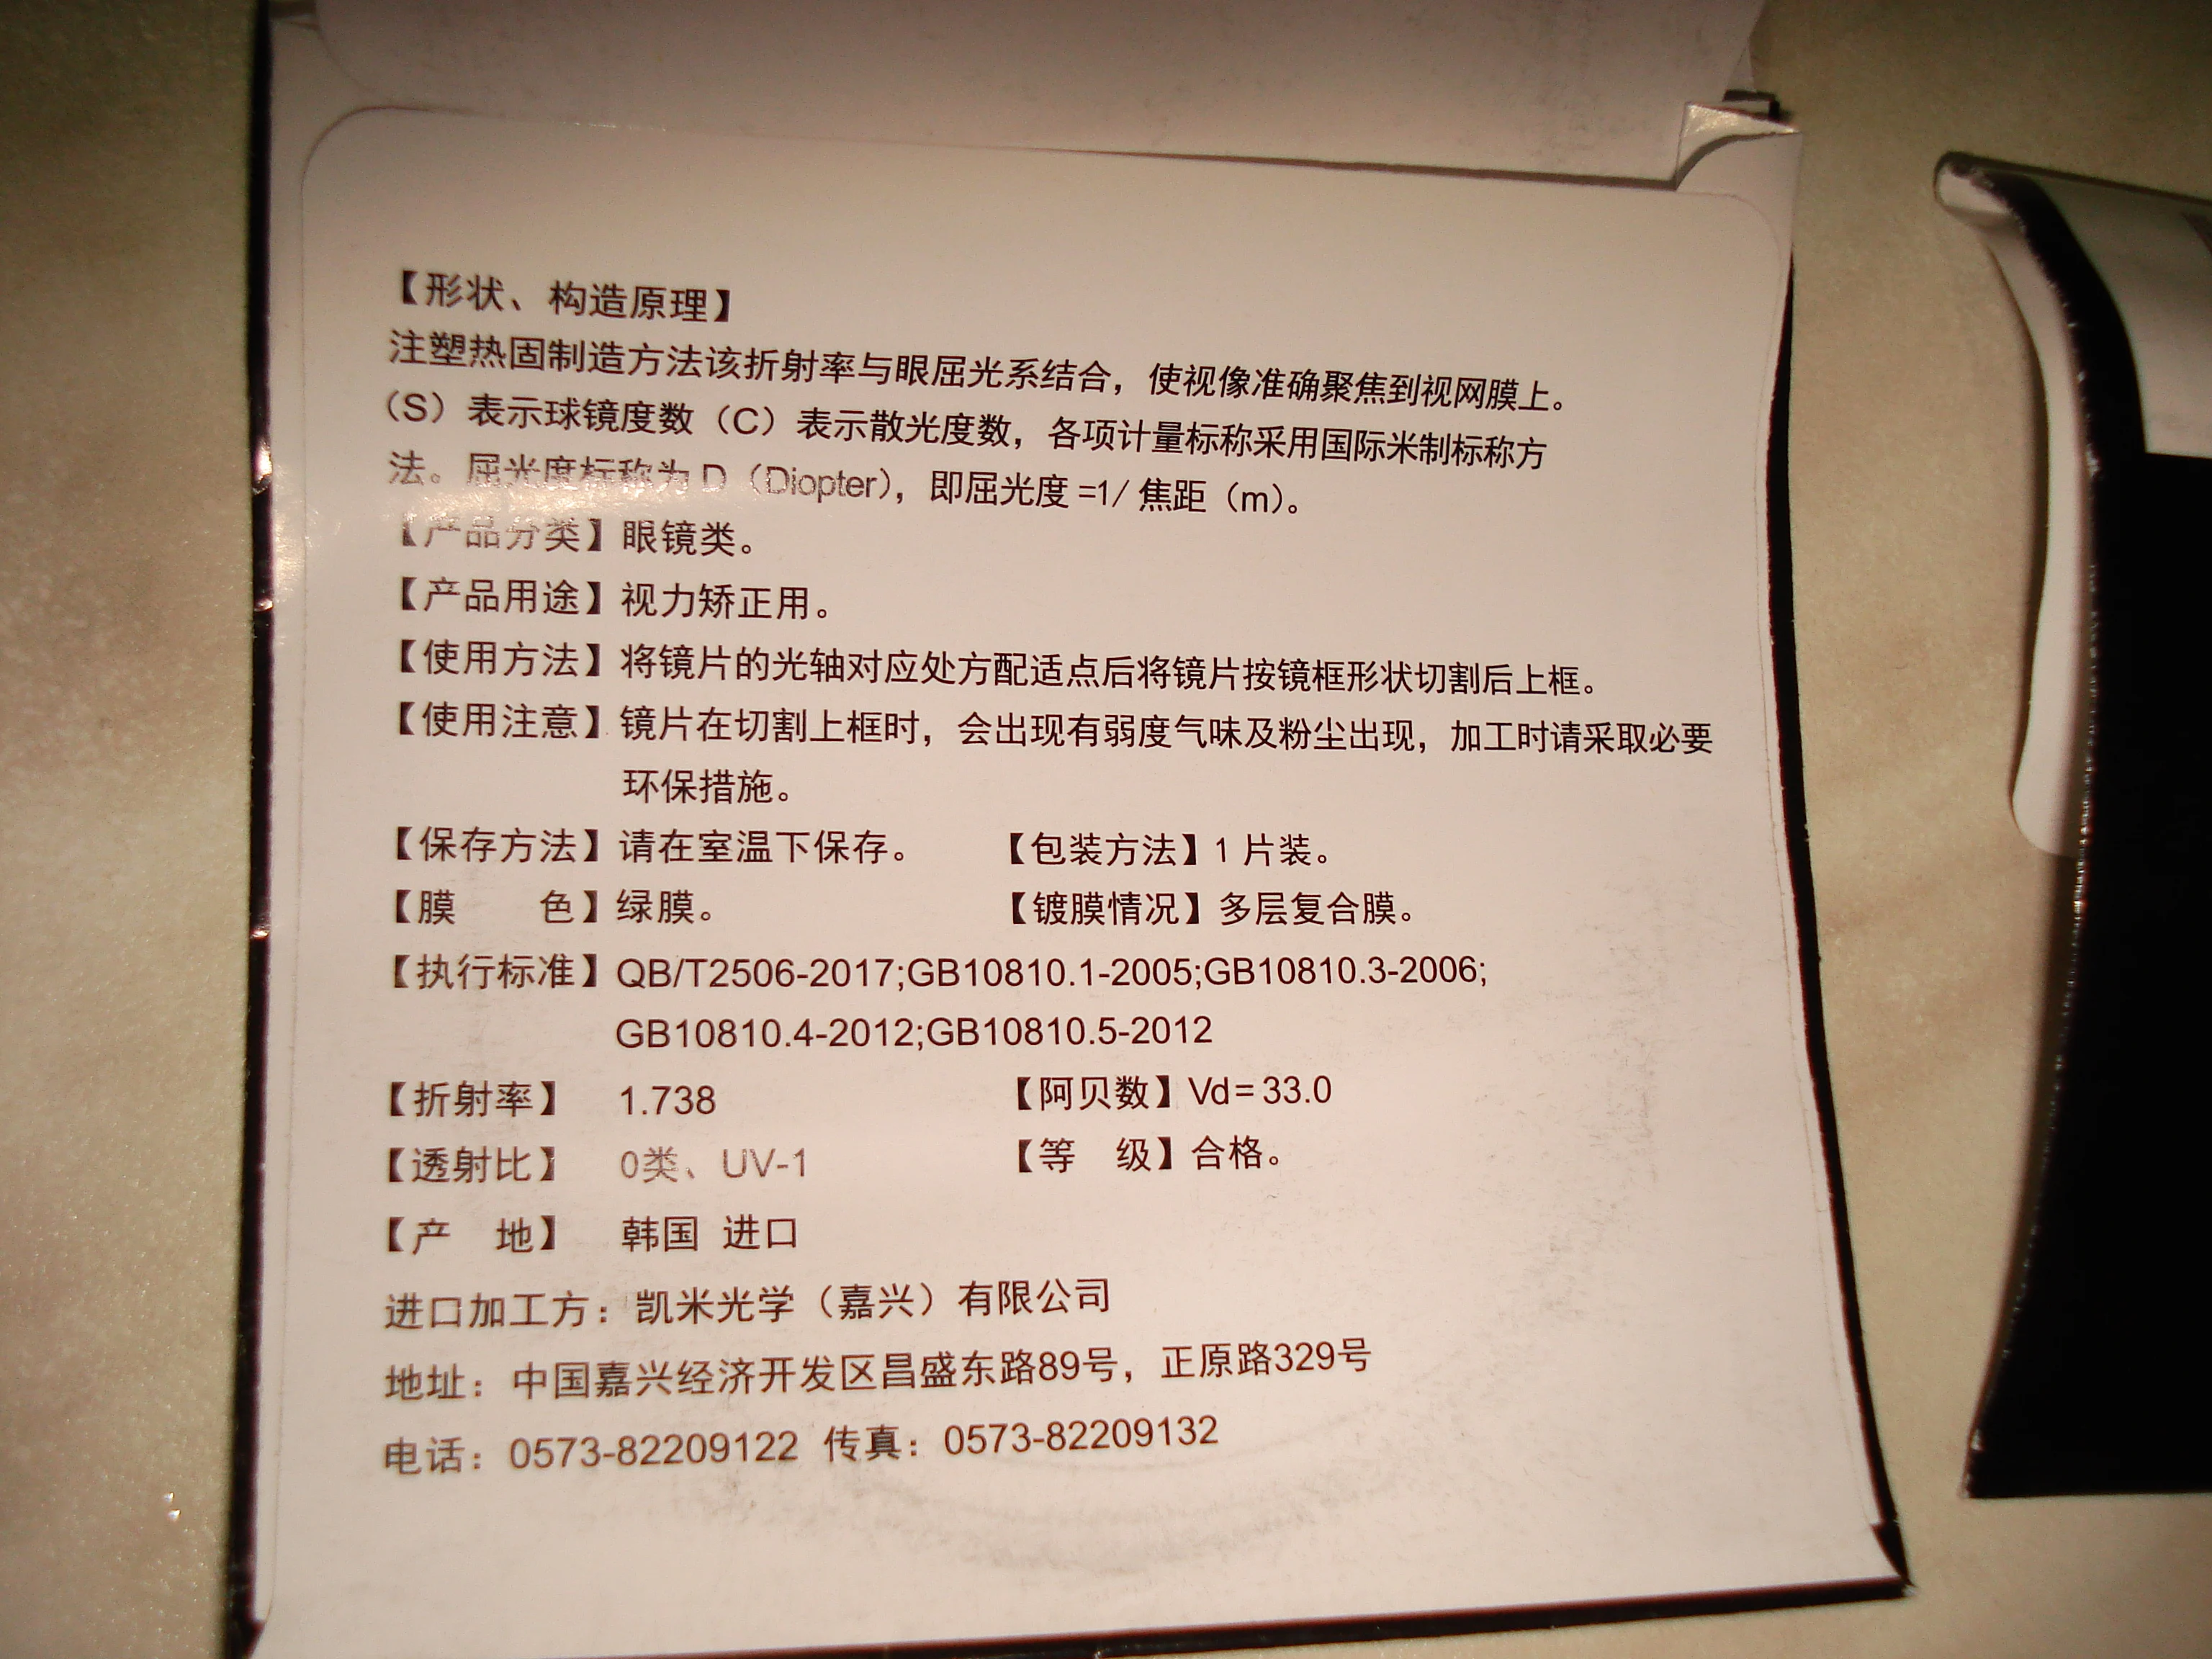 【形状、构造原理】
注塑热固制造方法该折射率与眼屈光系结合，使视像准确聚焦到视网膜上。
（S）表示球镜度数（C）表示散光度数，各项计量标称采用国际米制标称方
法。屈光度标称为 D（Diopter），即屈光度 =1/ 焦距（m）。
【产品分类】眼镜类。
【产品用途】视力矫正用。
【使用方法】将镜片的光轴对应处方配适点后将镜片按镜框形状切割后上框。
【使用注意】镜片在切割上框时，会出现有弱度气味及粉尘出现，加工时请采取必要
环保措施。
【保存方法】请在室温下保存。 【包装方法】1 片装。
【膜 色】绿膜。 【镀膜情况】多层复合膜。
【执行标准】QB/T2506-2017;GB10810.1-2005;GB10810.3-2006;
GB10810.4-2012;GB10810.5-2012
【折射率】 1.738 【阿贝数】Vd=33.0
【透射比】 0类、UV-1 【等 级】合格。
【产 地】 韩国 进口
进口加工方：凯米光学（嘉兴）有限公司
地址：中国嘉兴经济开发区昌盛东路89号，正原路329号
电话：0573-82209122 传真：0573-82209132